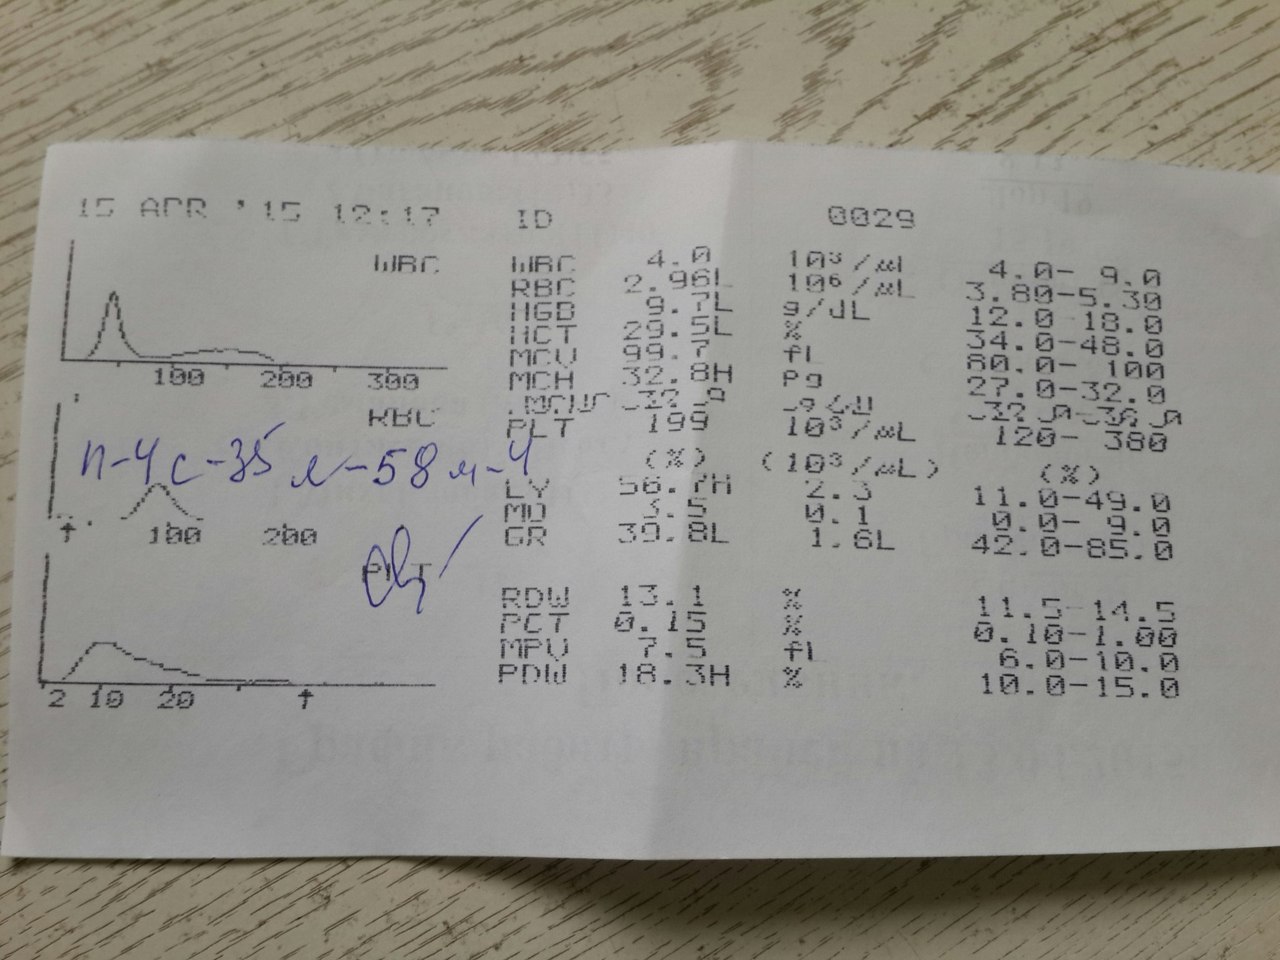 15 APR '15 12:17 ID 0029
WBC
WBC 4.0 10³/µl 4.0- 9.0
RBC 2.96L 10⁶/µL 3.80-5.30
HGB 9.7L g/dL 12.0-18.0
HCT 29.5L % 34.0-48.0
MCV 99.7 fl 80.0- 100
MCH 32.8H Pg 27.0-32.0
MCHC 32.9 32.0-36.0
PLT 199 10³/µL 120- 380
100 200 300
RBC
п-4 с-35 л-58 м-4
(%) (10³/µL) (%)
LY 56.7H 2.3 11.0-49.0
MO 3.5 0.1 0.0- 9.0
GR 39.8L 1.6L 42.0-85.0
100 200
PLT
RDW 13.1 % 11.5-14.5
PCT 0.15 % 0.10-1.00
MPV 7.5 fl 6.0-10.0
PDW 18.3H % 10.0-15.0
2 10 20